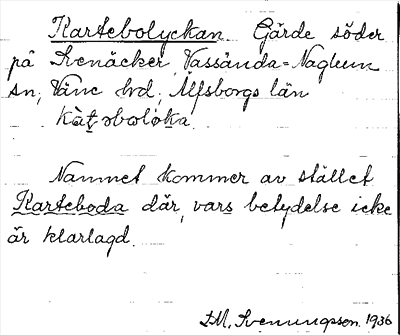 Kartebolyckan Gärde söder
på Svenäcker, Vassända-Naglum
sn, Väne hd, Älfsborgs län
Namnet kommer av stället
Karteboda där, vars betydelse icke
är klarlagd.
D.M. Svenungsson. 1936